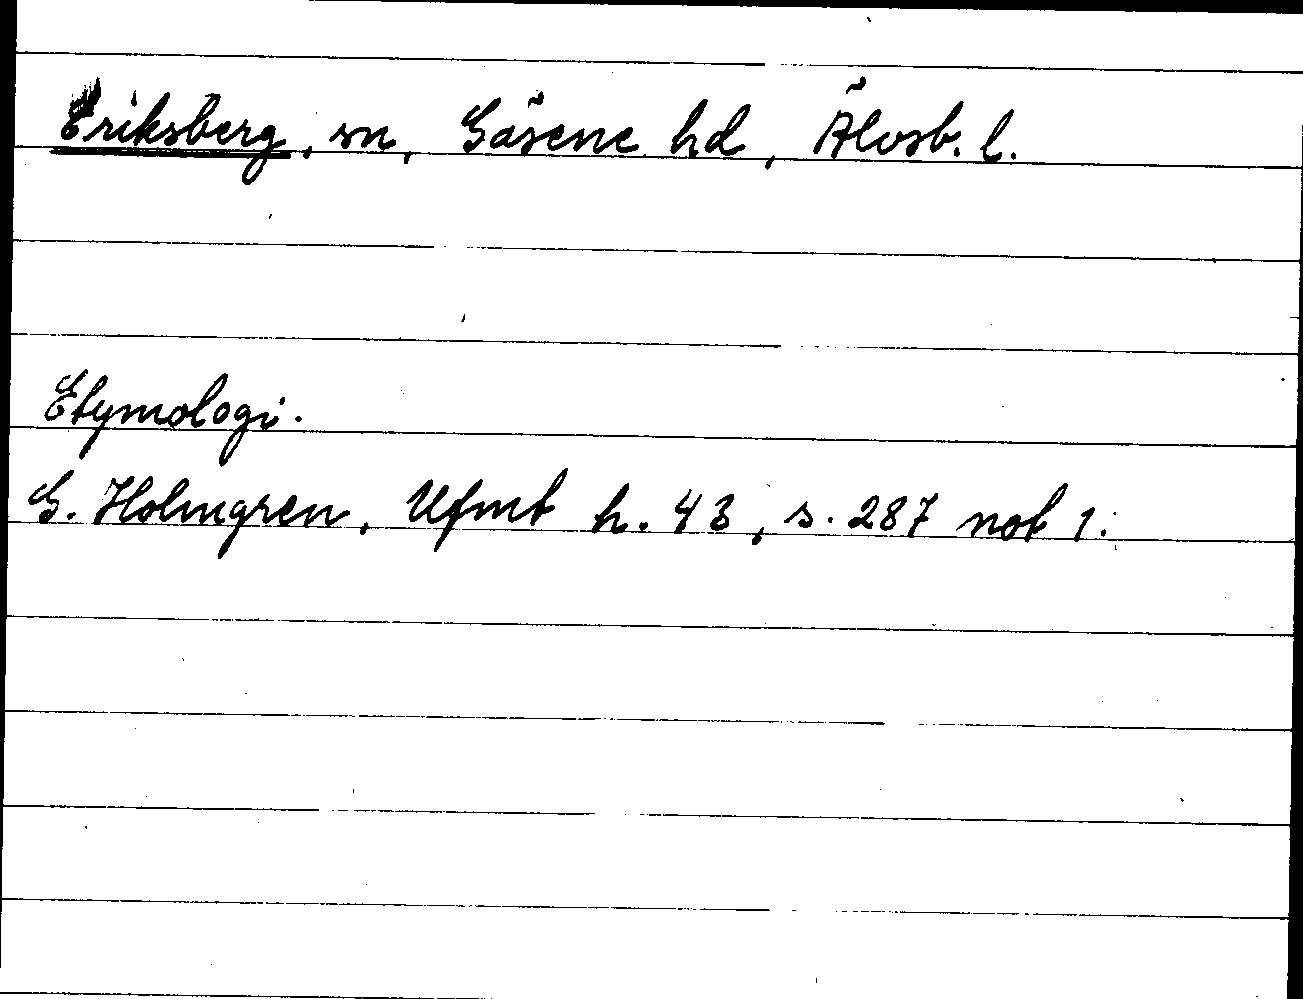 Eriksberg, sn, Gäsene hd, Älvsb. l.
Etymologi.
G. Holmgren, Ufmt h. 43, s. 287 not 1.